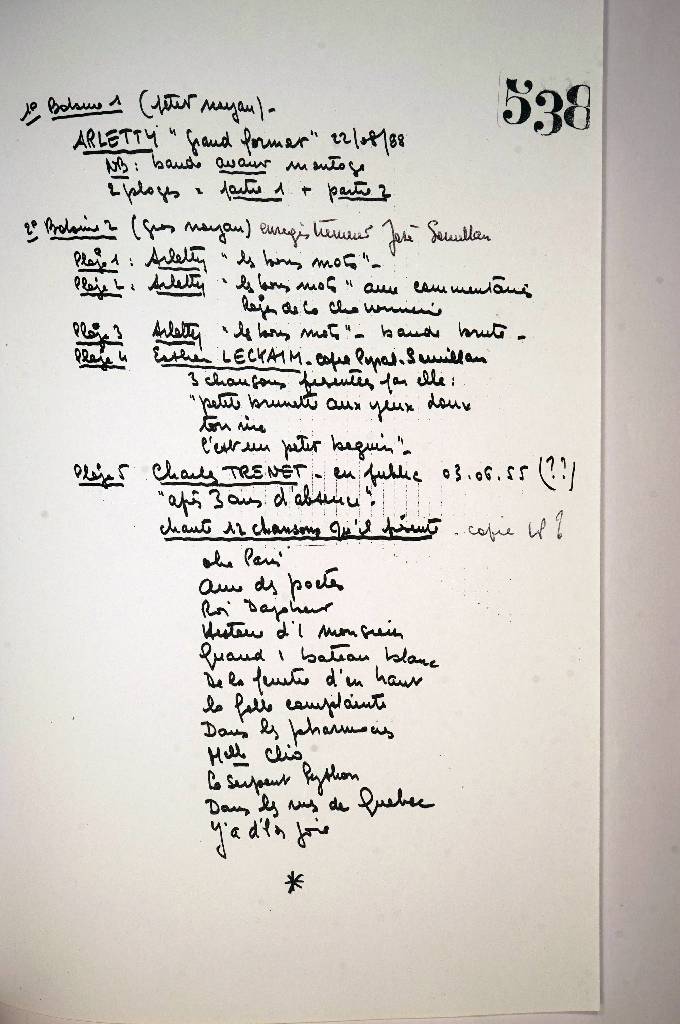 538
1° Bobine 1 (petit noyau) -
ARLETTY "Grand format" 22/08/88
NB : bande avant montage
2 plages = partie 1 + partie 2
2° Bobine 2 (Gros noyau) enregistrement José
Plage 1 : Arletty "les bons mots" -
Plage 2 : Arletty "les bons mots" avec commentaires
de la
Plage 3 Arletty "les bons mots" - bande brute -
Plage 4 - copie
3 chansons présentées par elle :
"petite brunette aux yeux doux
ton rire
c'est un petit beguin" -
Plage 5 Charles TRENET - en public 03.06.55 (??)
"après 3 ans d'absence".
chante 12 chansons qu'il présente - copie LP ?
Paris
Ame des poètes
Roi Dagobert
Histoire d'1 monsieur
Quand 1 bateau blanc
De la fenêtre d'en haut
la folle complainte
Dans les pharmacies
Melle Clio
Le Serpent Python
Dans les rues de Quebec
Y'a d'la joie
*